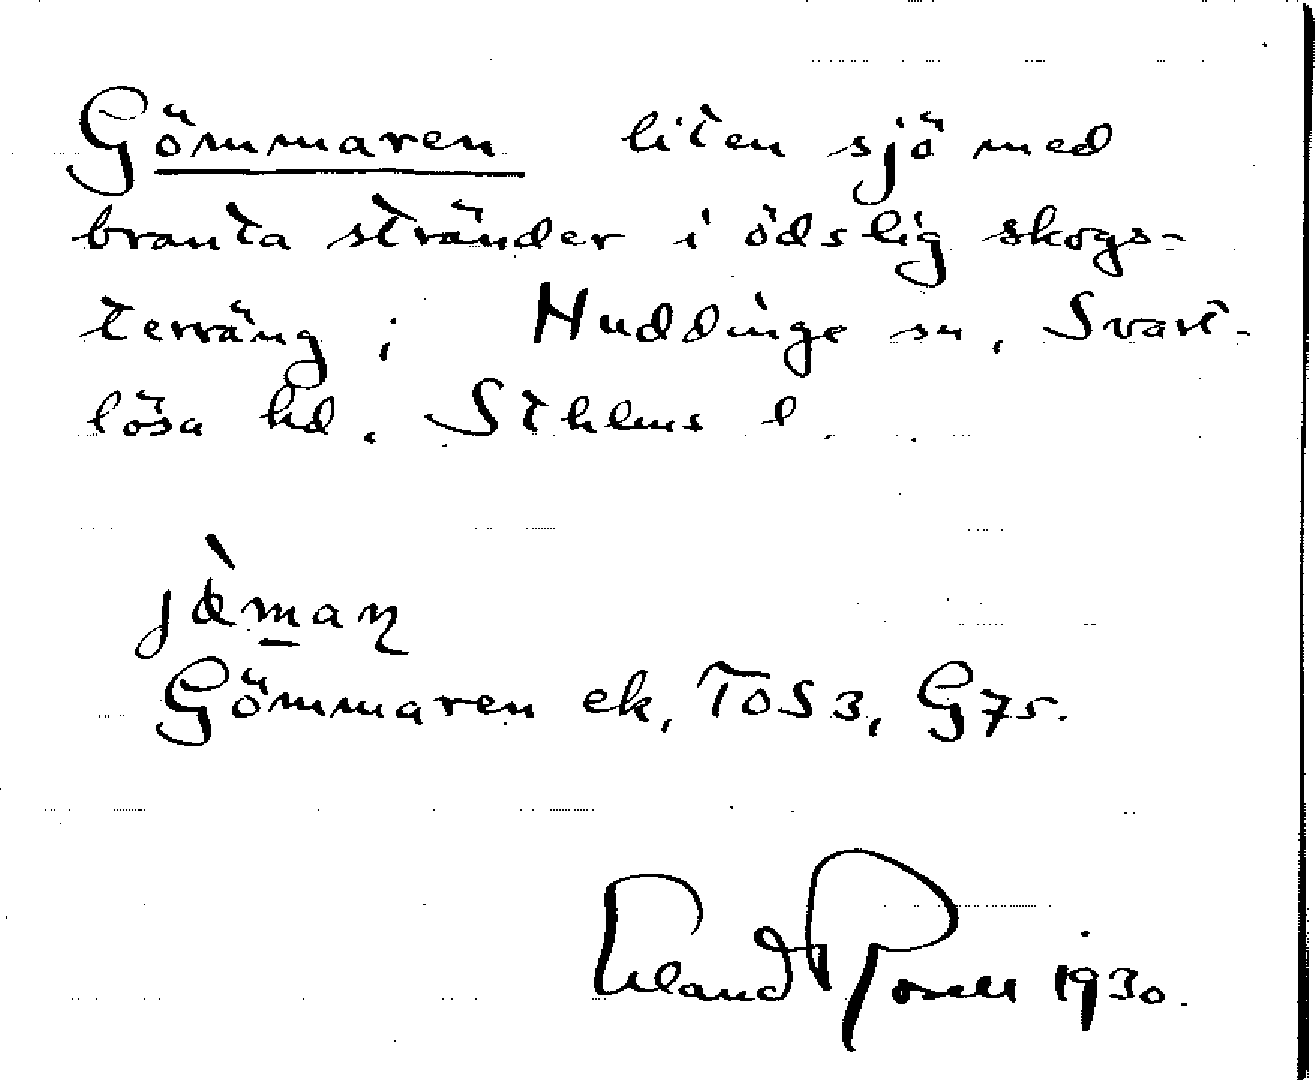 Gömmaren liten sjö med
branta stränder i ödslig skogs-
terräng i Huddinge sn, Svart-
lösa hd. Sthlms l.
Gömmaren ek, TOS3, G75.
Erland Rosell 1930.